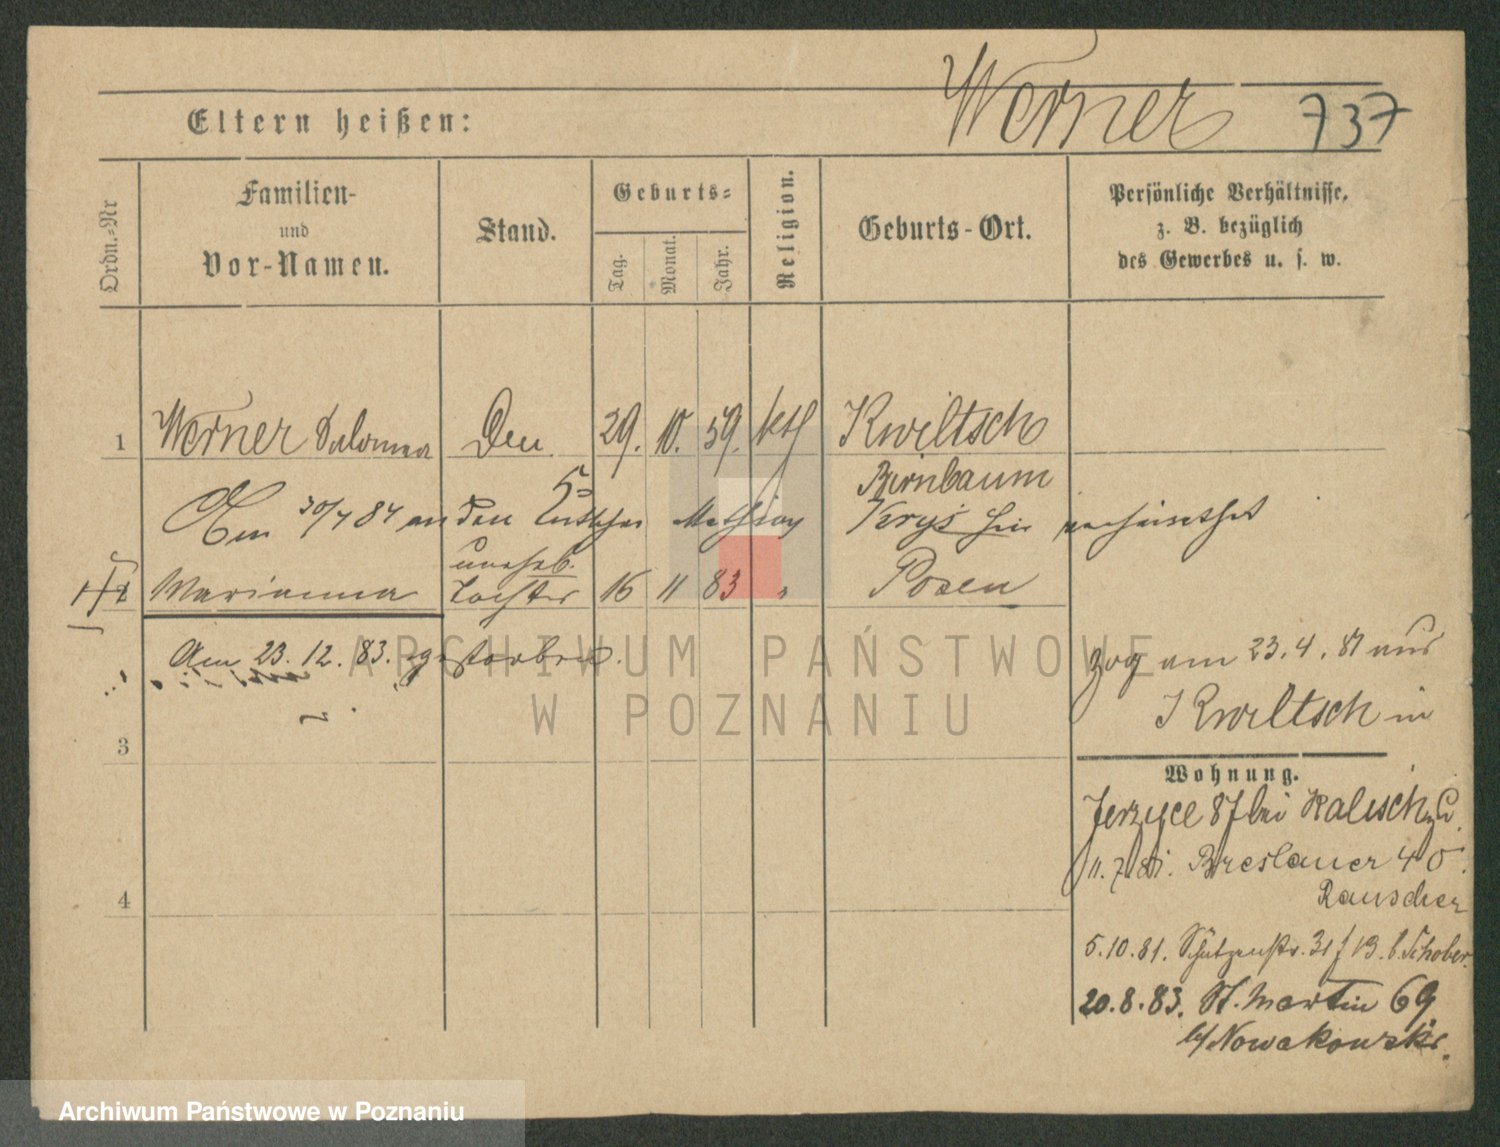 Werner 737
Eltern heißen:
Ordn.-Nr
Familien-
und
Vor-Namen.
Stand.
Geburts-
Tag.
Monat.
Jahr.
Religion.
Geburts-Ort.
Persönliche Verhältnisse,
z. B. bezüglich
des Gewerbes u. s. w.
1 Werner Salomea 29. 10. 59. kth Kwiltsch
Birnbaum
Am 30/7 84 an den Mathias verheirathet
unehel.
Marianna Tochter 16 11 83 " Posen
Am 23. 12. 83. gestorben.
zog am 23. 4. 81 aus
Kwiltsch in
3
Wohnung.
Jerzyce 87 bei Kalisch
11. 7. 81. Breslauer 40
Rauscher
4
5. 10. 81. Schützenstr. 31 b. Schober.
20. 8. 83. St. Martin 69
b/ Nowakowski.
ARCHIWUM PAŃSTWOWE
W POZNANIU
Archiwum Państwowe w Poznaniu